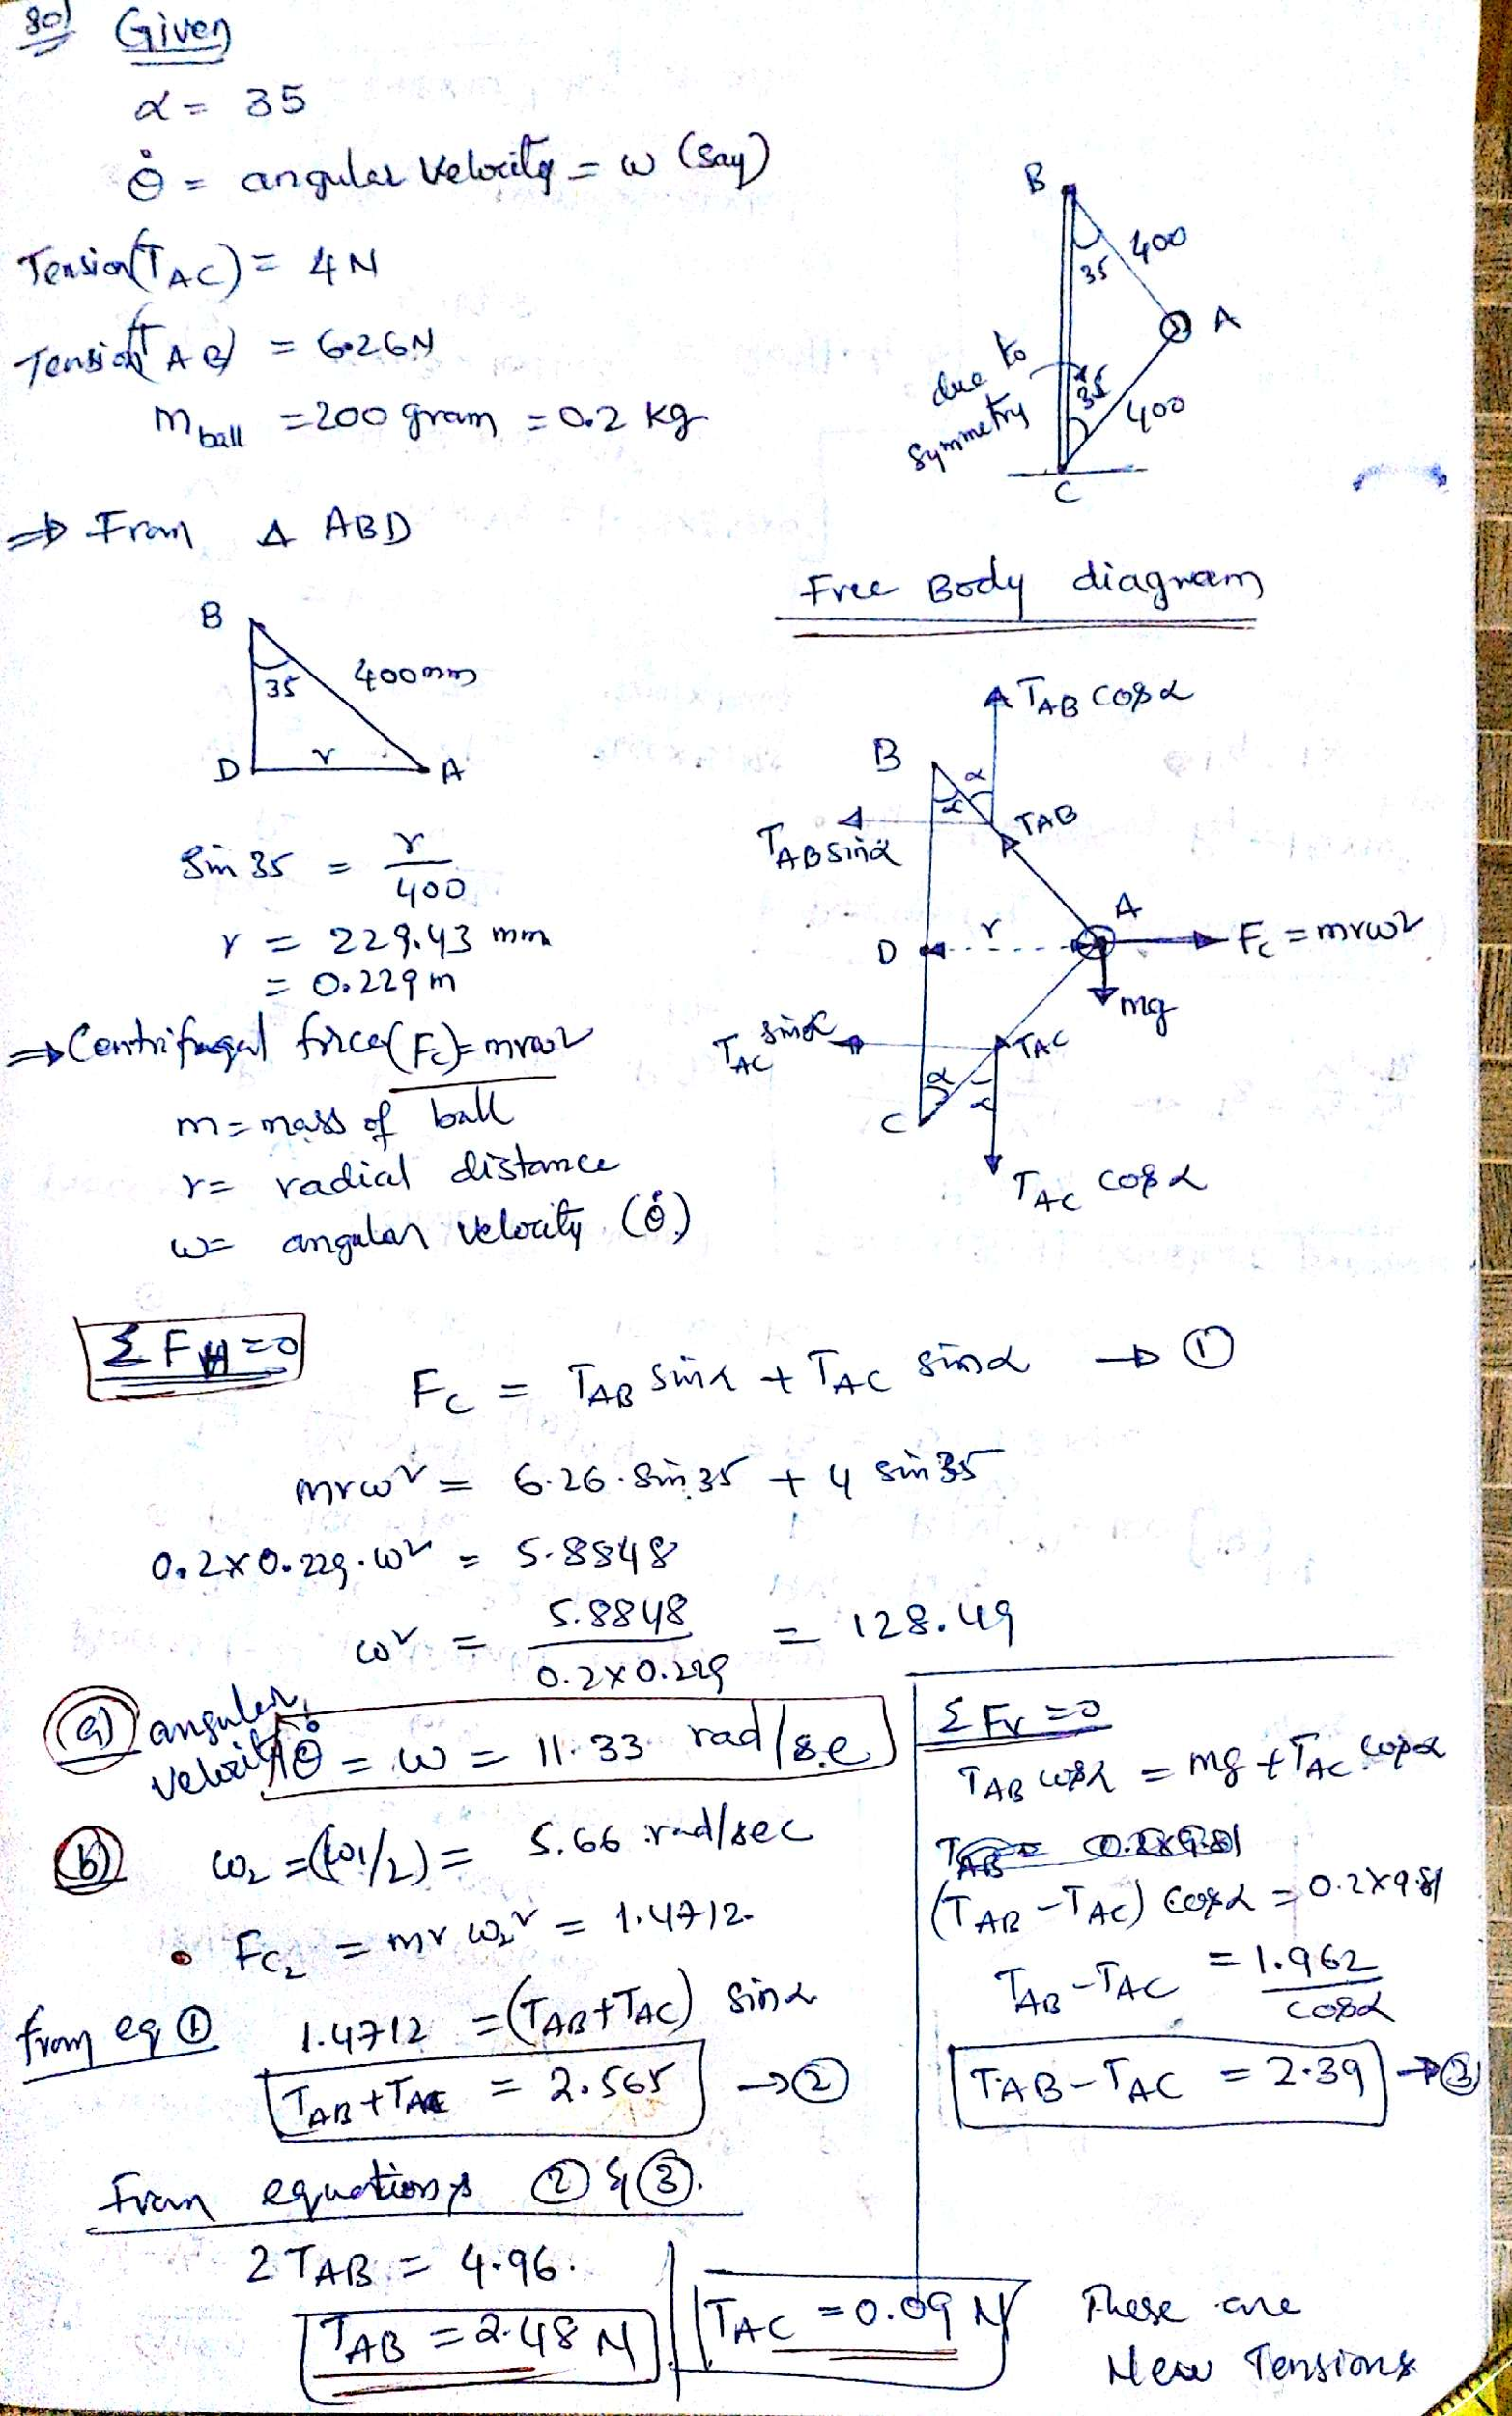 80) Given
α = 35
θ̇ = angular velocity = ω (say)
Tension(T_AC) = 4 N
Tension(T_AB) = 6.26 N
m_ball = 200 gram = 0.2 kg
B
35
400
A
due to
symmetry
35
400
C
⇒ From Δ ABD
B
35
400mm
D
r
A
Sin 35 = r/400
r = 229.43 mm
= 0.229 m
⇒ Centrifugal force(F_c) = mrω²
m = mass of ball
r = radial distance
ω = angular velocity (θ̇)
Free Body diagram
T_AB cos α
B
α
α
T_AB
T_AB sin α
A
D
r
F_c = mrω²
mg
T_AC sin α
T_AC
α
α
C
T_AC cos α
ΣF_H = 0
F_c = T_AB sin α + T_AC sin α → ①
mrω² = 6.26 . Sin 35 + 4 sin 35
0.2 × 0.229 . ω² = 5.8848
ω² = 5.8848/0.2×0.229 = 128.49
(a) angular
velocity θ̇ = ω = 11.33 rad/se
(b) ω₂ = (ω₁/2) = 5.66 rad/sec
• F_C₂ = mr ω₂² = 1.4712
from eq ① 1.4712 = (T_AB + T_AC) sin α
T_AB + T_AC = 2.565 → ②
ΣF_V = 0
T_AB cos α = mg + T_AC cos α
(T_AB - T_AC) cos α = 0.2×9.81
T_AB - T_AC = 1.962/cos α
T_AB - T_AC = 2.39 → ③
From equations ② & ③.
2 T_AB = 4.96.
T_AB = 2.48 N
T_AC = 0.09 N
These are
New Tensions